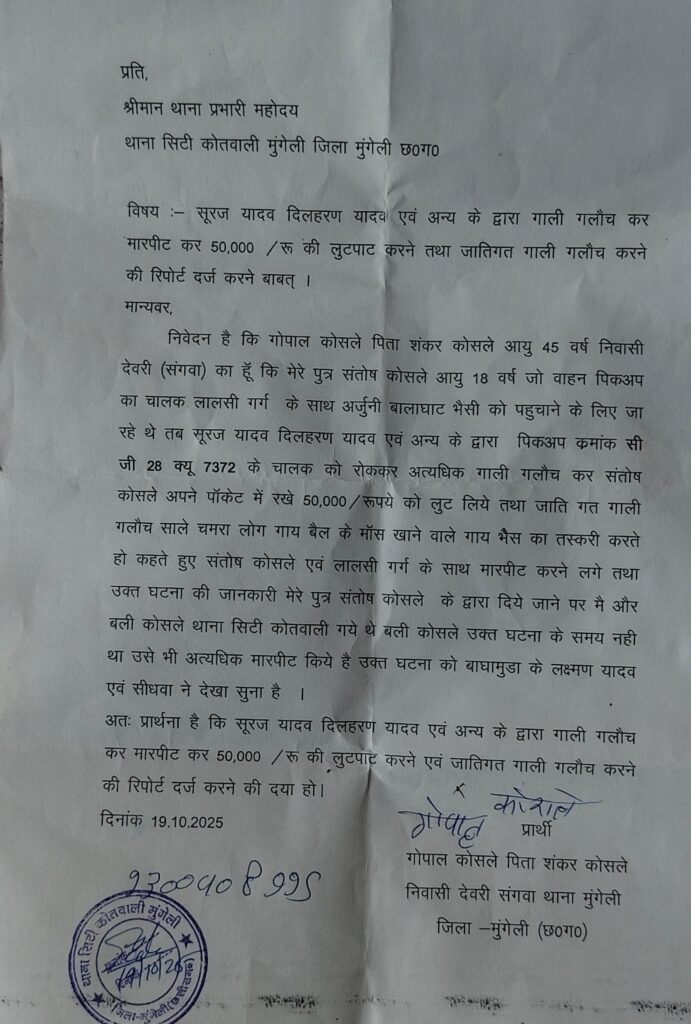 प्रति,
श्रीमान थाना प्रभारी महोदय
थाना सिटी कोतवाली मुंगेली जिला मुंगेली छ0ग0
विषय :– सूरज यादव दिलहरण यादव एवं अन्य के द्वारा गाली गलौच कर
मारपीट कर 50,000 /रू की लुटपाट करने तथा जातिगत गाली गलौच करने
की रिपोर्ट दर्ज करने बाबत् ।
मान्यवर,
निवेदन है कि गोपाल कोसले पिता शंकर कोसले आयु 45 वर्ष निवासी
देवरी (संगवा) का हूँ कि मेरे पुत्र संतोष कोसले आयु 18 वर्ष जो वाहन पिकअप
का चालक लालसी गर्ग के साथ अर्जुनी बालाघाट भैसी को पहुचाने के लिए जा
रहे थे तब सूरज यादव दिलहरण यादव एवं अन्य के द्वारा पिकअप क्रमांक सी
जी 28 क्यू 7372 के चालक को रोककर अत्यधिक गाली गलौच कर संतोष
कोसले अपने पॉकेट में रखे 50,000/रूपये को लुट लिये तथा जाति गत गाली
गलौच साले चमरा लोग गाय बैल के मॉस खाने वाले गाय भैस का तस्करी करते
हो कहते हुए संतोष कोसले एवं लालसी गर्ग के साथ मारपीट करने लगे तथा
उक्त घटना की जानकारी मेरे पुत्र संतोष कोसले के द्वारा दिये जाने पर मै और
बली कोसले थाना सिटी कोतवाली गये थे बली कोसले उक्त घटना के समय नही
था उसे भी अत्यधिक मारपीट किये है उक्त घटना को बाघामुडा के लक्ष्मण यादव
एवं सीधवा ने देखा सुना है ।
अतः प्रार्थना है कि सूरज यादव दिलहरण यादव एवं अन्य के द्वारा गाली गलौच
कर मारपीट कर 50,000 /रू की लुटपाट करने एवं जातिगत गाली गलौच करने
की रिपोर्ट दर्ज करने की दया हो।
दिनांक 19.10.2025
गोपाल कोसले
प्रार्थी
गोपाल कोसले पिता शंकर कोसले
निवासी देवरी संगवा थाना मुंगेली
जिला –मुंगेली (छ0ग0)
थाना सिटी कोतवाली मुंगेली
जिला-मुंगेली (छत्तीसगढ़)